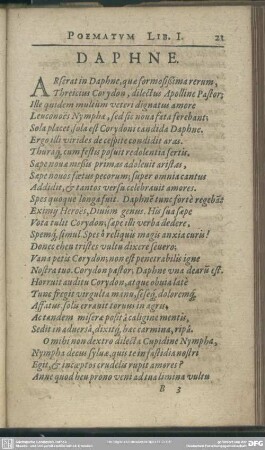 POEMATVM LIB. I. 21
DAPHNE.
ARserat in Daphne, quæ formosissima rerum,
Threicius Corydon, dilectus Apolline Pastor,
Ille quidem multum veteri dignatus amore
Leuconoës Nympha, sed sic noua fata ferebant:
Sola placet, sola est Corydoni candida Daphne.
Ergo illi virides de cespite condidit aras.
Thuraq́, cum festis posuit redolentia sertis,
Sape noua messis primas adoleuit aristas,
Sape nouos fœtus pecorum; super omnia cantus
Addidit, & tantos versu celebrauit amores.
Spes quoque longa fuit. Daphne tunc forte regebāt
Eximij Heroës, Diuûm genus. His sæpe
Vota tulit Corydon, sæpe illi verba dedere,
Spemq́, simul. Spes ô reliquis magis anxia curis!
Donec eheu tristes vultu dixere seuero;
Vana petis Corydon, non est penetrabilis igne
Nostra tuo. Corydon pastor, Daphne vna dearū est.
Horruit auditu Corydon, atque obuia latè
Tunc fregit virgulta manu, seseq́, doloremq́
Affatus solis errauit toruus in agris;
Ac tandem misera posita caligine mentis,
Sedit in aduersâ, dixitq́, hæc carmina, ripâ.
O mihi non dextro dilecta Cupidine Nympha,
Nympha decus syluæ, quis te in fastidia nostri
Egit, & inceptos crudelis rupit amores?
Anne quod heu prono veni ad tua limina vultu
B 3